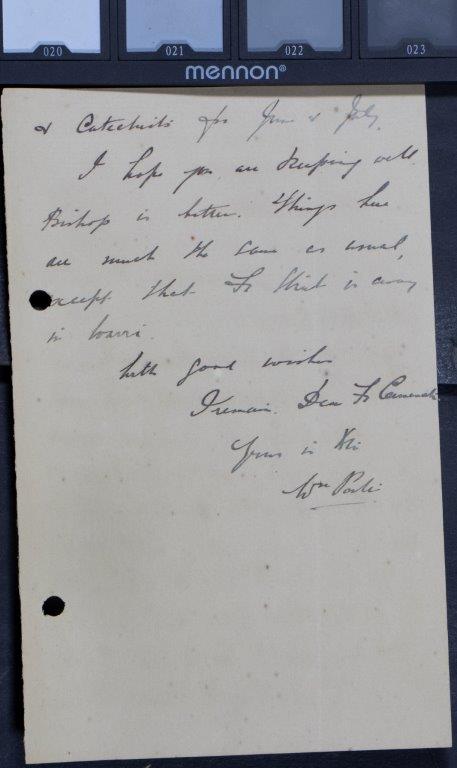 020 021 022 023
mennon®
& Catechists for June & July.
I hope you are keeping well.
Bishop is better. Things here
are much the same as usual,
except that Fr Strub is away
in Warri.
With good wishes
I remain, Dear Fr
Yours in Xti
Wm Porte